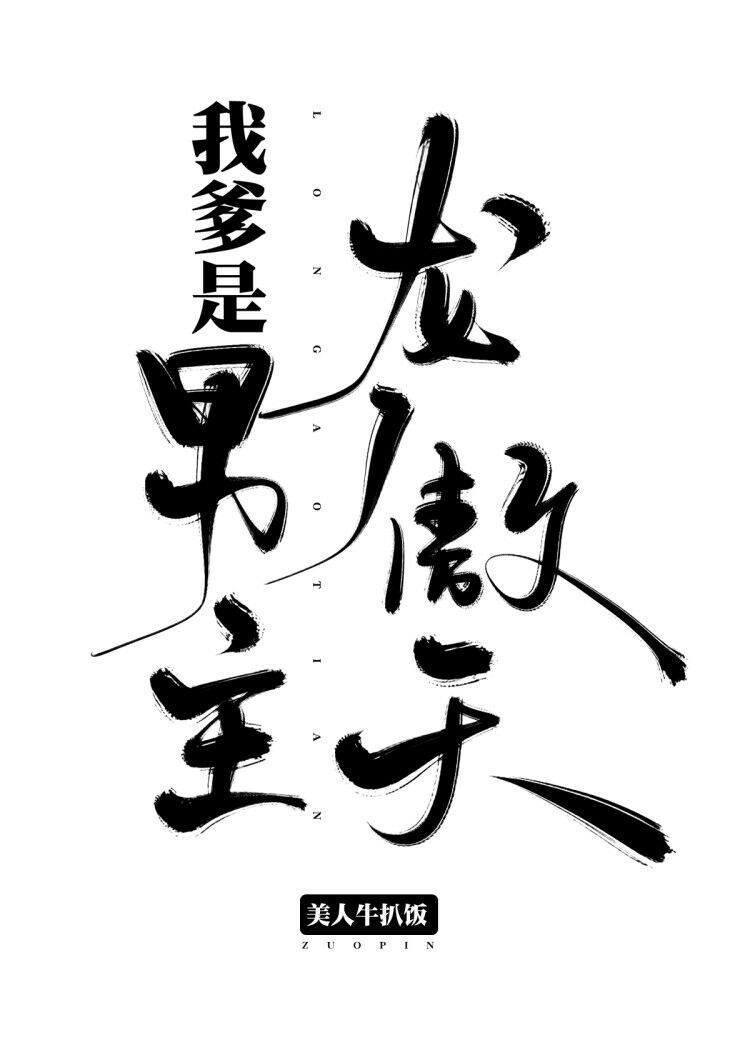 我爹是
男主
龙傲天
LONGAOTIAN
美人牛扒饭
ZUOPIN